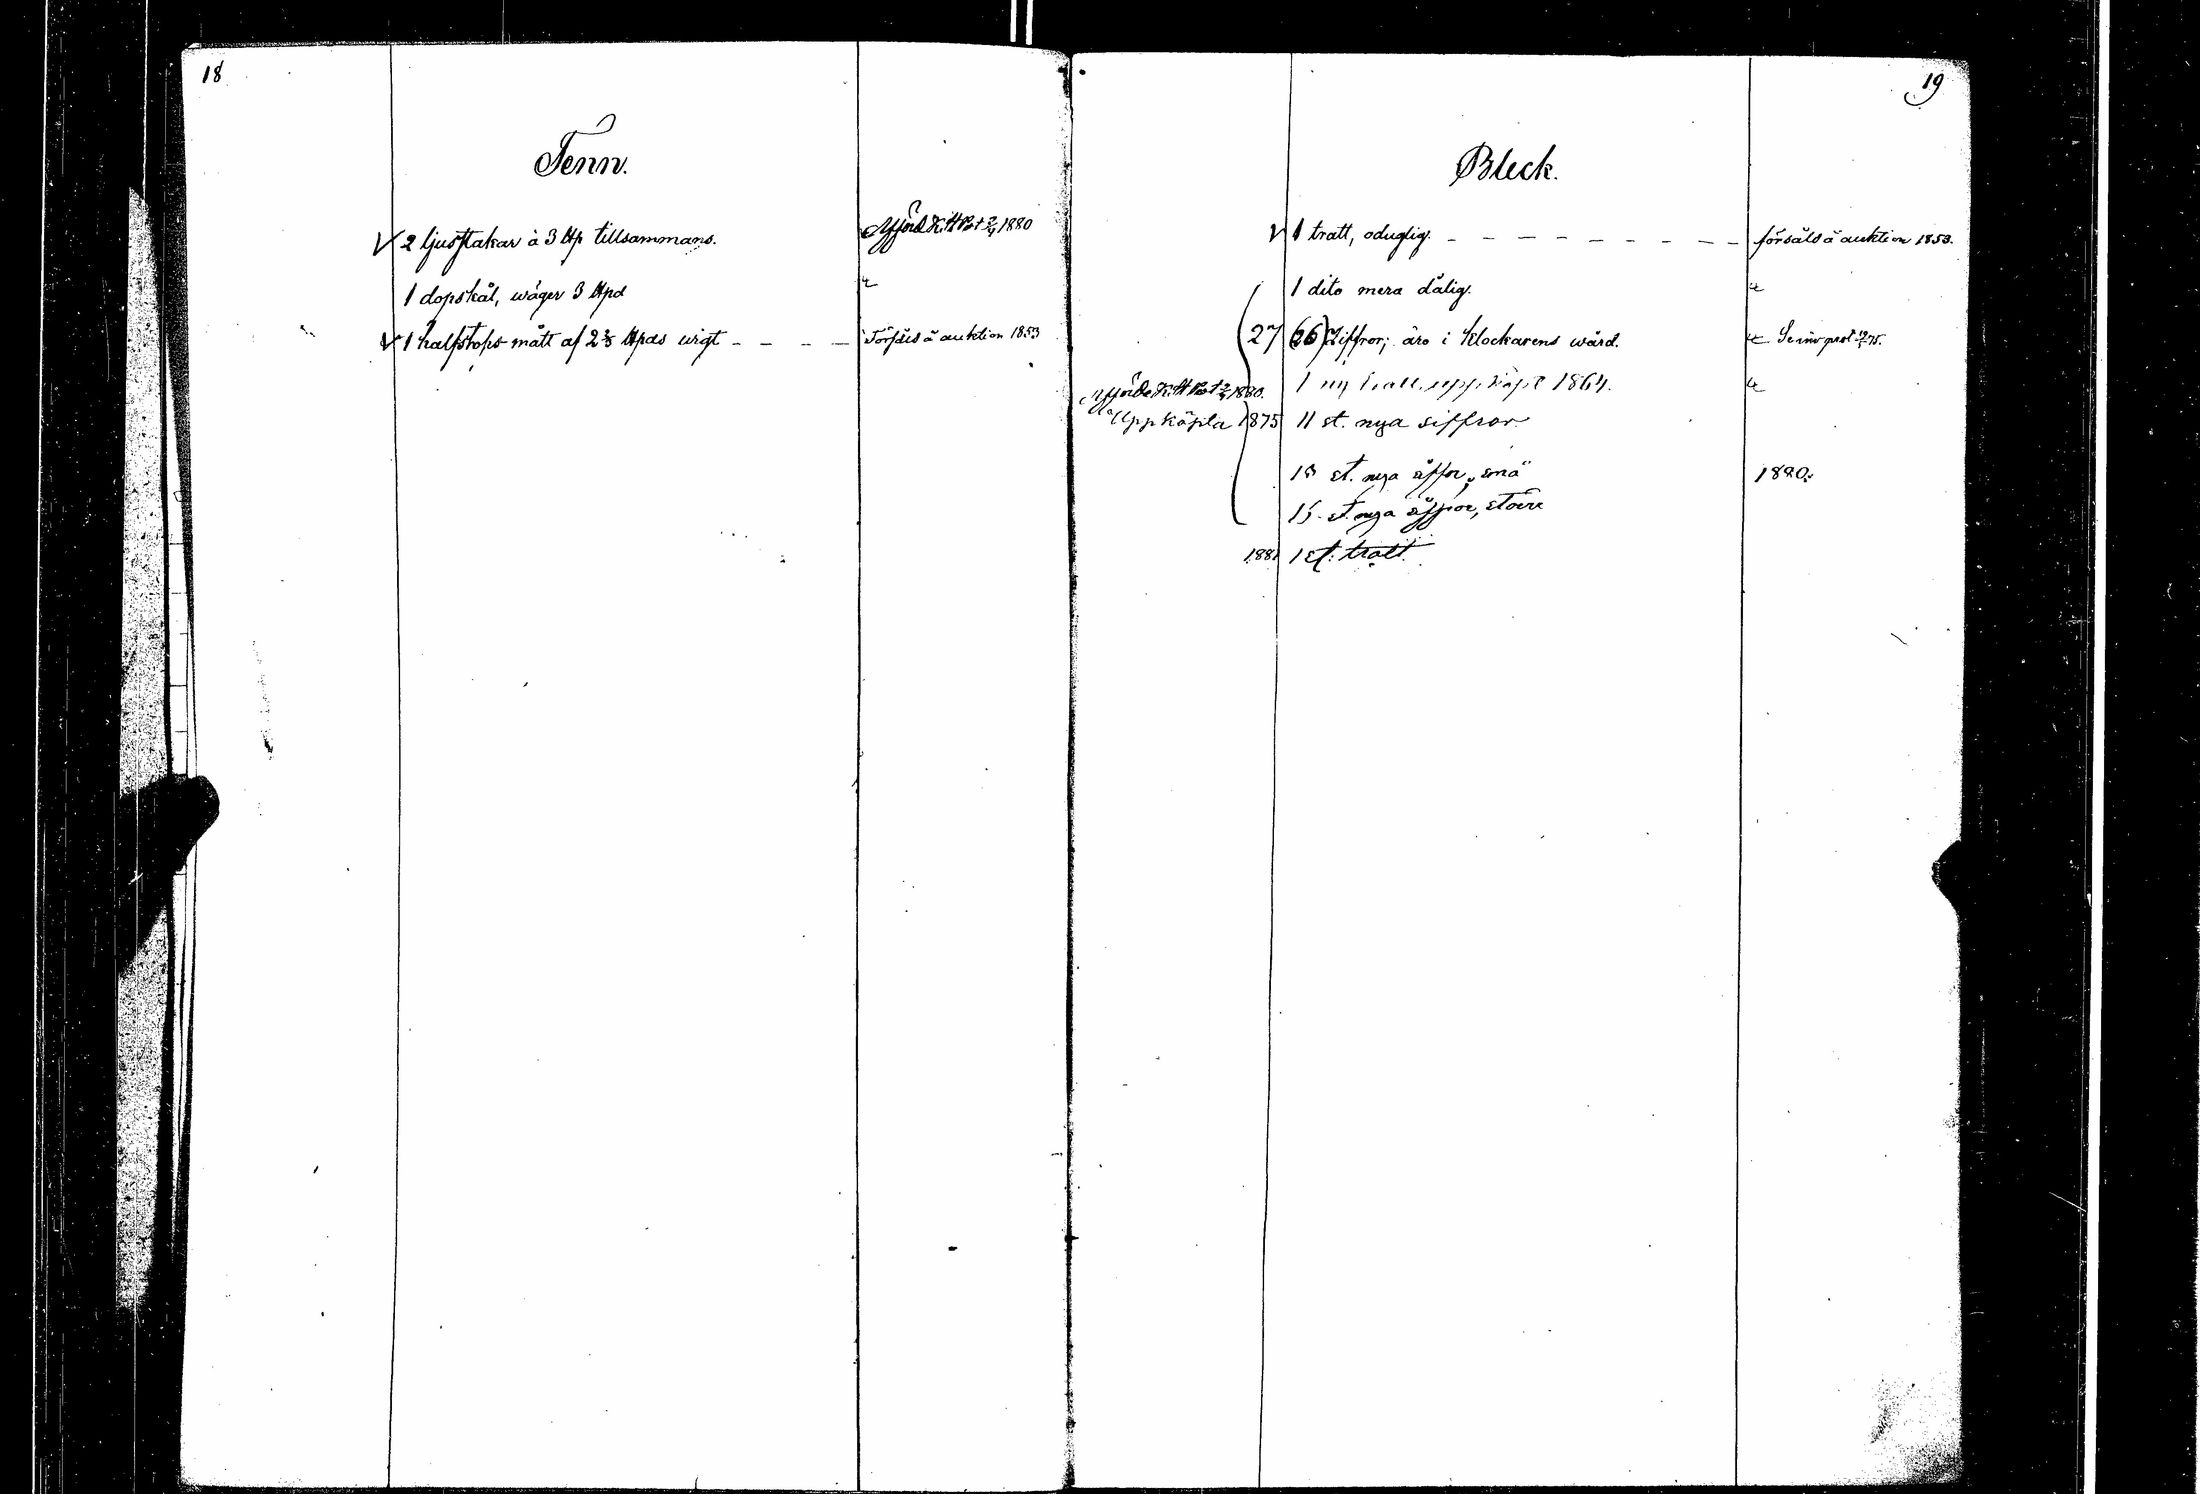 18
Tenn.
V 2 ljusstakar à 3 ℔ tillsammans. Afförd 1880
1 dopskål, wäger 3 ℔pd
V 1 halfstops mått af 2 ⅔ ℔pds wigt - - - - Försåld å auktion 1853
19
Bleck.
V 1 tratt, oduglig. - - - - - - - - - försåld å auktion 1853.
1 dito mera dålig.
27 (26) Ziffror; äro i Klockarens wård. Se inv prot 75.
Afförde 1880. 1 ny tratt, uppköpt 1864.
Uppköpta 1875 11 st. nya siffror
st. nya små" 1880.
15 st. nya större
1881 1 st. tratt.